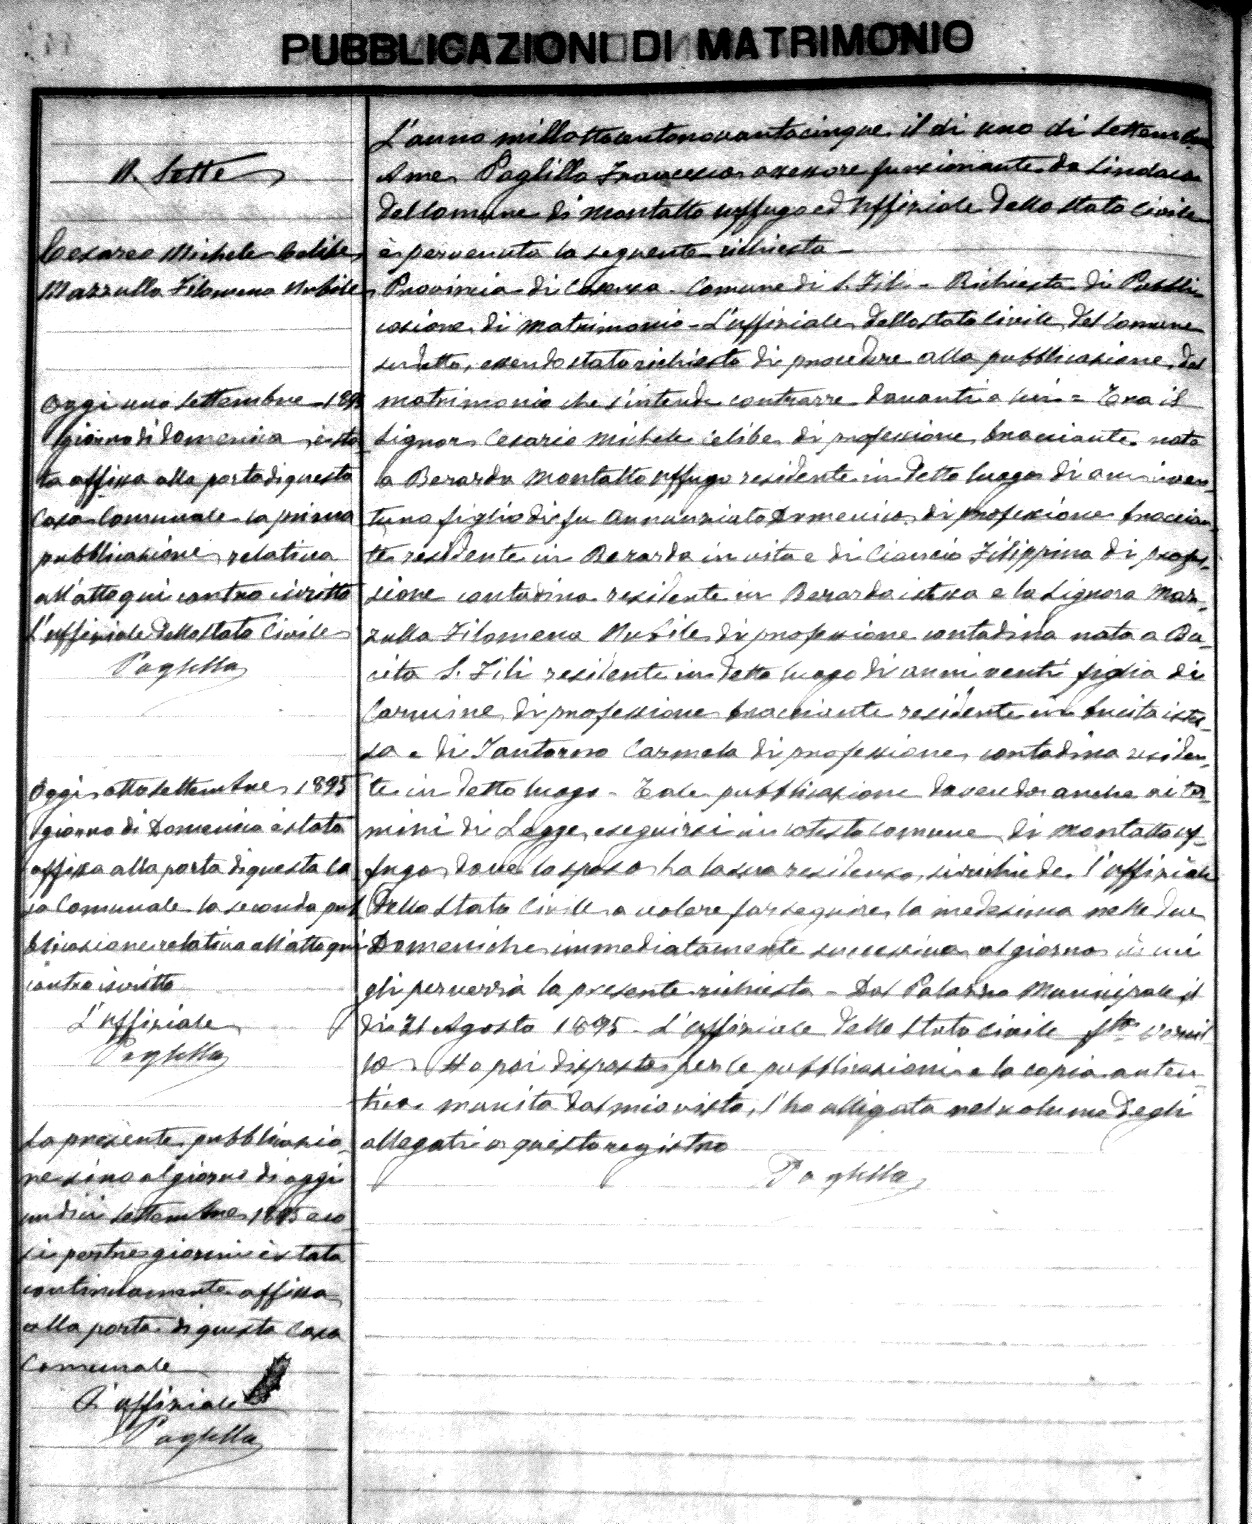 PUBBLICAZIONI DI MATRIMONIO
N. Sette
Cesareo Michele Celibe
Mazzulla Filomena Nubile
Oggi uno Settembre 1895
giorno di Domenica, è sta
ta affissa alla porta di questa
Casa Comunale la prima
pubblicazione relativa
all'atto qui contro iscritto
L'uffiziale dello Stato Civile
Paglilla
Oggi otto Settembre 1895
giorno di Domenica è stata
affissa alla porta di questa Ca
sa Comunale la seconda pub
blicazione relativa all'atto qui
contro iscritto
L'uffiziale
Paglilla
La presente pubblicazio
ne sino al giorno di oggi
undici Settembre 1895 e co
si per tre giorni è stata
continuamente affissa
alla porta di questa Casa
Comunale
L'uffiziale
Paglilla
L'anno millottocentonovantacinque, il di uno di Settembre
A me Paglilla Francesco assessore funzionante da Sindaco
del Comune di Montalto Uffugo ed Uffiziale dello Stato Civile
è pervenuta la seguente richiesta -
Provincia di Cosenza - Comune di S. Fili - Richiesta di Pubbli
cazione di matrimonio - L'uffiziale dello Stato Civile del Comune
suddetto, essendo stato richiesto di procedere alla pubblicazione del
matrimonio che s'intende contrarre davanti a lui = Tra il
Signor Cesario Michele celibe di professione bracciante nato
a Berarda Montalto Uffugo residente in detto luogo di anni ven-
tuno figlio di fu Annunziato Domenico di professione braccian-
te residente in Berarda in vita e di Ciancio Filippina di profes-
sione contadina residente in Berarda istessa e la Signora Maz-
zulla Filomena Nubile di professione contadina nata a Bu
cita S. Fili residente in detto luogo di anni venti figlia di
Carmine di professione bracciante residente in Bucita istes
sa e di Santoro Carmela di professione contadina residen-
te in detto luogo - Tale pubblicazione dovendo anche ai ter-
mini di Legge, eseguirsi in cotesto Comune di Montalto Uf-
fugo dove lo sposo ha la sua residenza, si richiede l'Uffiziale
dello Stato Civile a volere far seguire la medesima nelle due
Domeniche immediatamente successive al giorno in cui
gli perverrà la presente richiesta - Dal Palazzo Municipale il
di 31 Agosto 1895 - L'uffiziale dello Stato Civile
Ho poi disposto per le pubblicazioni e la copia auten-
tica munita dal mio visto, l'ho alligata nel volume degli
allegati a questo registro
Paglilla